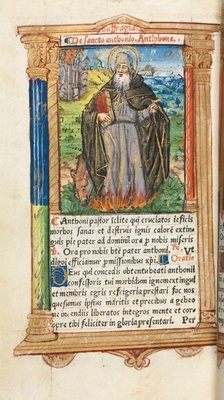 Suffragia
De sancto anthonio. Antiphona.
Anthoni pastor iclite qui cruciatos reficis
morbos sanas et destruis ignis calorē extin
guis pie pater ad dominū ora ꝓ nobis miseris
Ora pro nobis btē pater anthoni. Ut
digni efficiamur promissionibus xp̄i. Oratio
Deus qui concedis obtentu beati anthonii
confessoris tui morbidum ignem extingui
et membris egris refrigeria prestari fac nos
quesumus ipsius meritis et precibus a gehen
ne incendiis liberatos integros mente et cor
pore tibi feliciter in gloria presentari. Per